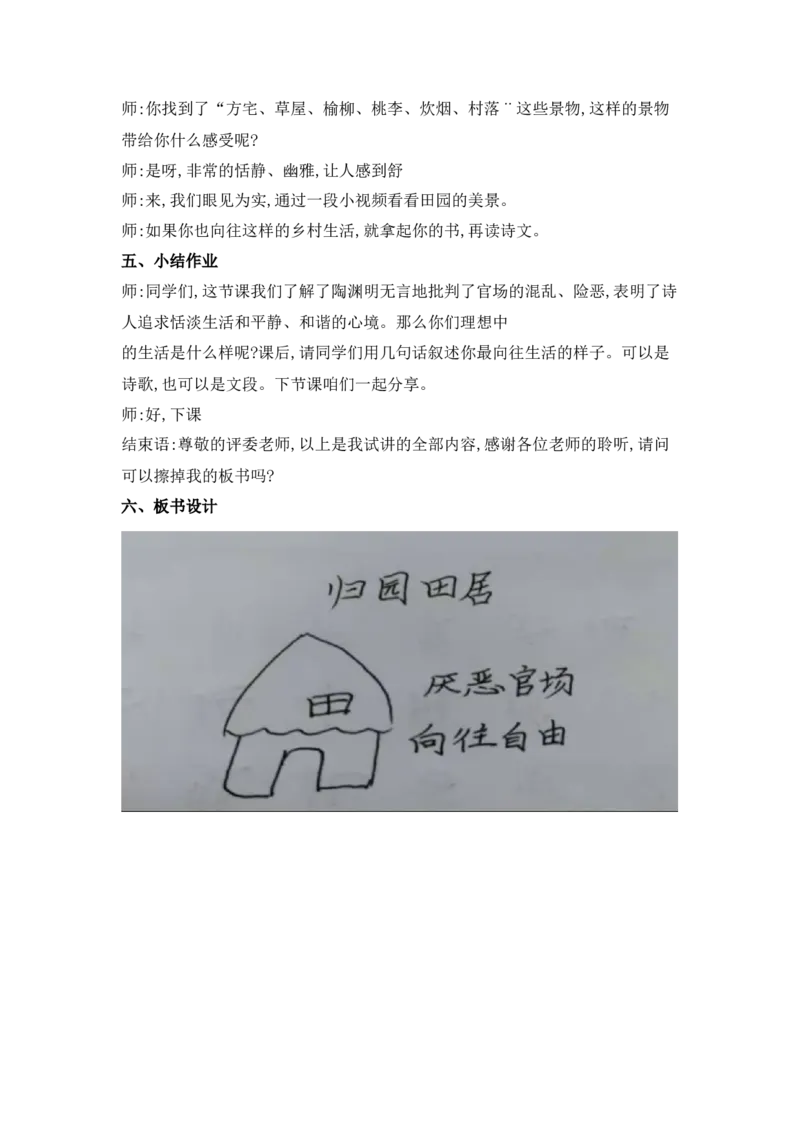 师:你找到了“方宅、草屋、榆柳、桃李、炊烟、村落¨这些景物,这样的景物
带给你什么感受呢?
师:是呀,非常的恬静、幽雅,让人感到舒
师:来,我们眼见为实,通过一段小视频看看田园的美景。
师:如果你也向往这样的乡村生活,就拿起你的书,再读诗文。
五、小结作业
师:同学们,这节课我们了解了陶渊明无言地批判了官场的混乱、险恶,表明了诗
人追求恬淡生活和平静、和谐的心境。那么你们理想中
的生活是什么样呢?课后,请同学们用几句话叙述你最向往生活的样子。可以是
诗歌,也可以是文段。下节课咱们一起分享。
师:好,下课
结束语:尊敬的评委老师,以上是我试讲的全部内容,感谢各位老师的聆听,请问
可以擦掉我的板书吗?
六、板书设计
归园田居
厌恶官场
田
向往自由